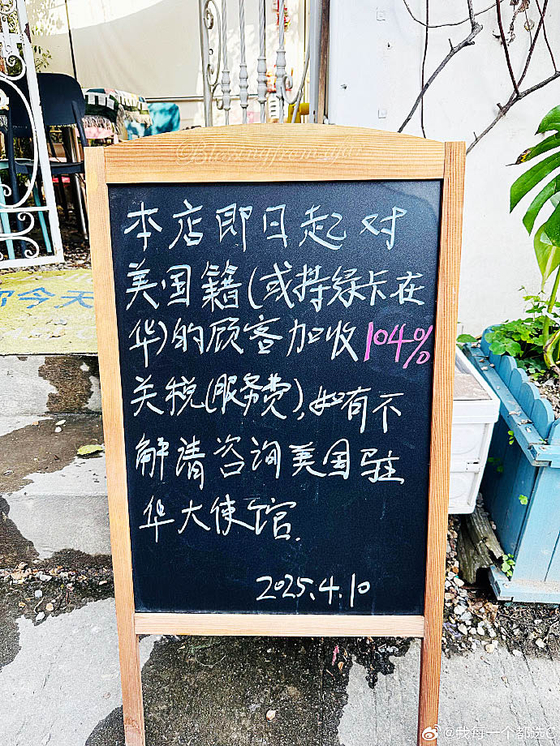 本店即日起对
美国籍(或持绿卡在
华)的顾客加收104%
关税(服务费),如有不
解请咨询美国驻
华大使馆.
2025.4.10
你今天